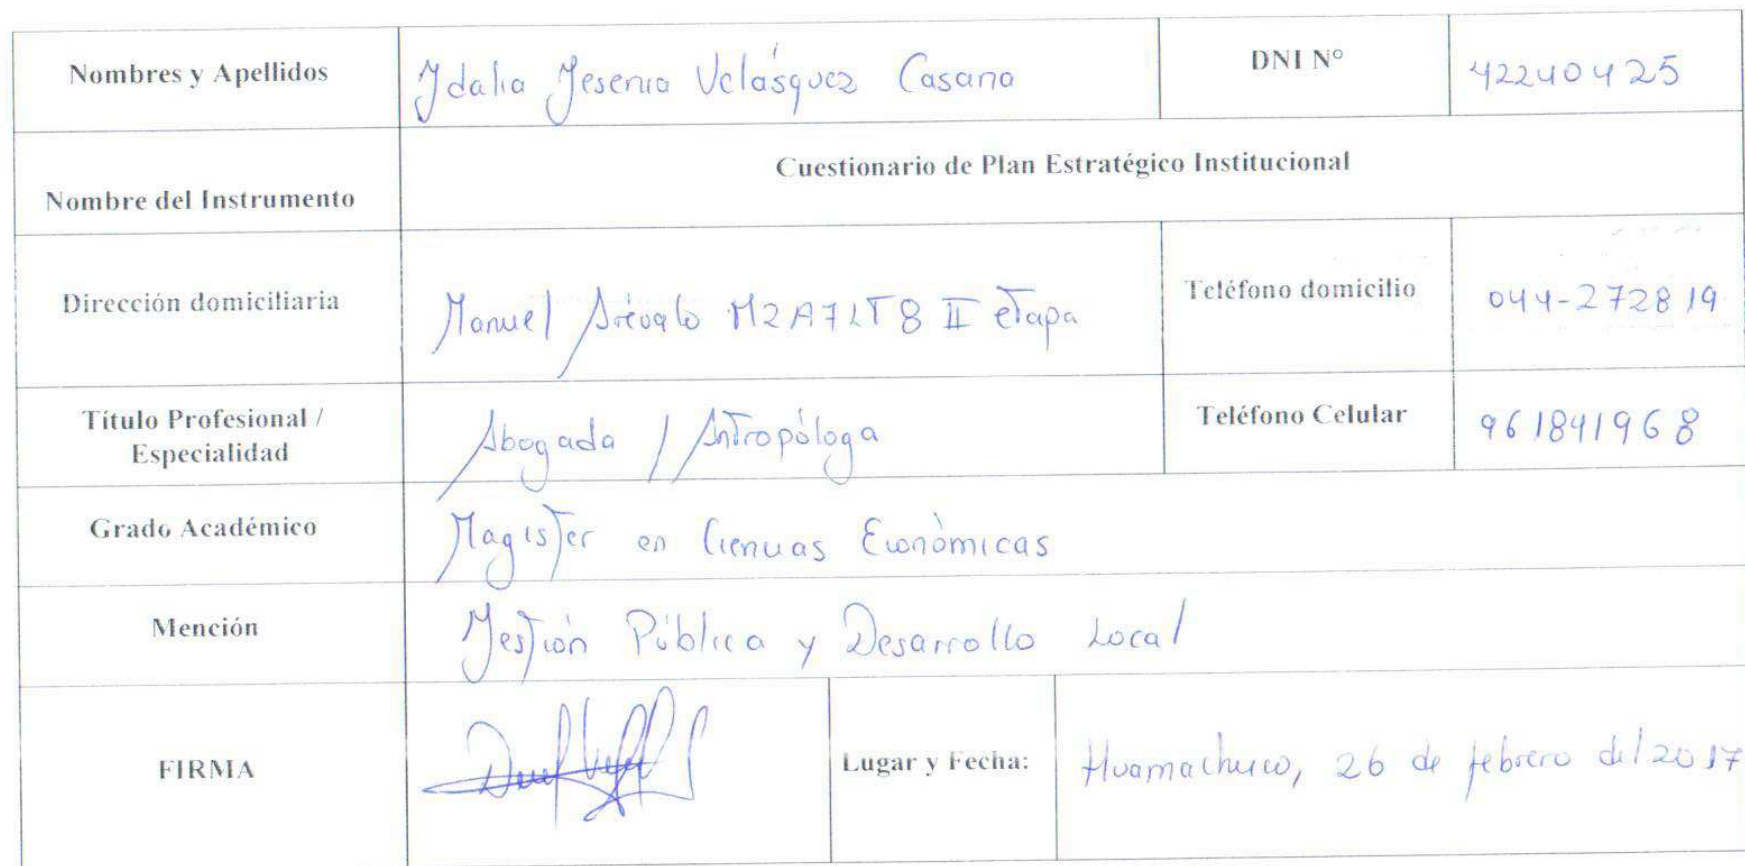 Nombres y Apellidos Ydalia Yesenia Velásquez Casana DNI Nº 42240425
Cuestionario de Plan Estratégico Institucional
Nombre del Instrumento
Dirección domiciliaria Manuel Arévalo MZA7LT8 II etapa Teléfono domicilio 044-272819
Título Profesional / Especialidad Abogada / Antropóloga Teléfono Celular 961841968
Grado Académico Magister en Ciencias Económicas
Mención Gestión Pública y Desarrollo Local
FIRMA Lugar y Fecha: Huamachuco, 26 de febrero del 2017